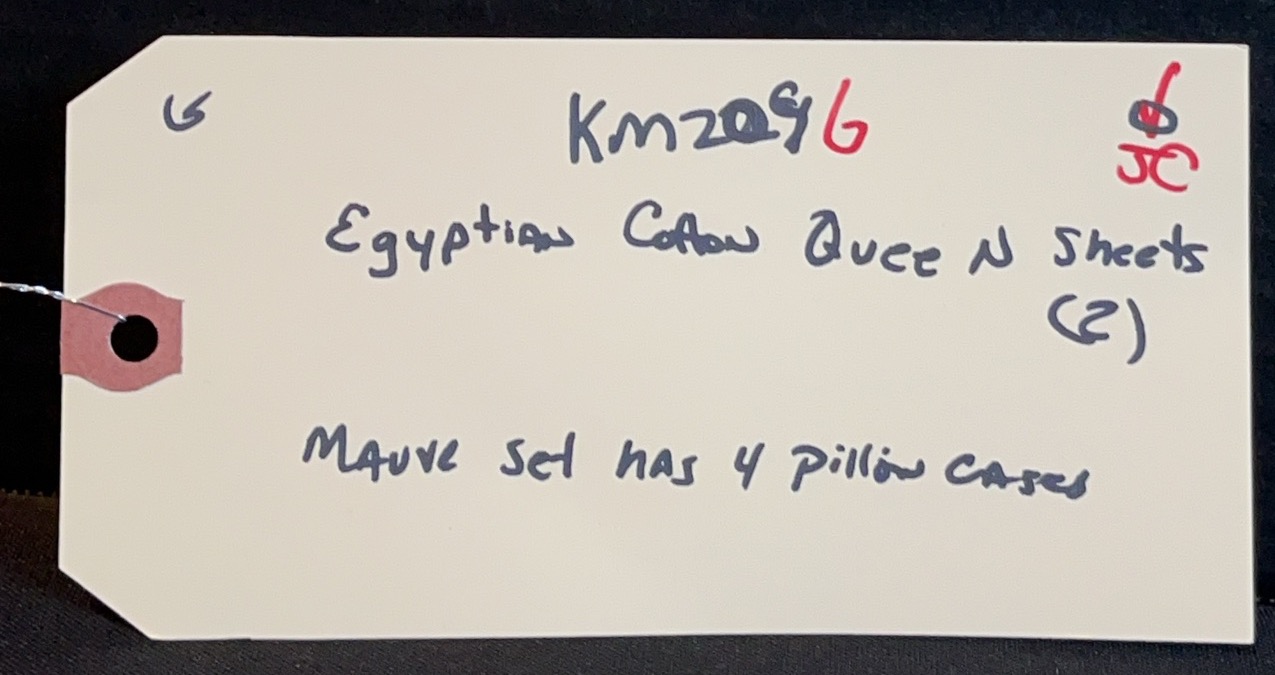 G KM2096
JC
Egyptian Cotton Queen Sheets
(2)
Mauve set has 4 pillow cases